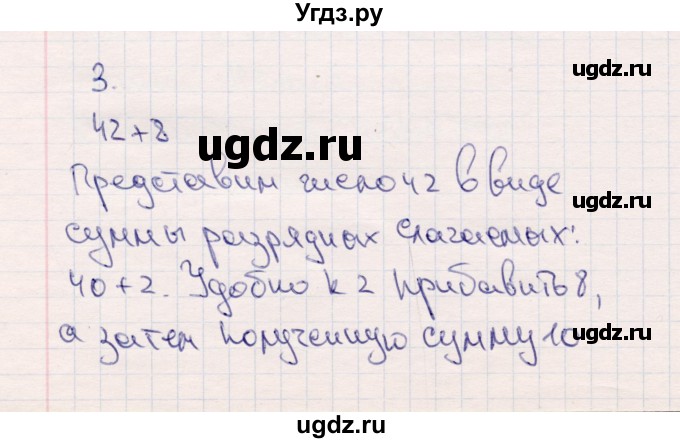 Угдз.ру
ugdz.ru
3.
ugdz.ru
42+8
ugdz.ru
Представим число 42 в виде
ugdz.ru
суммы разрядных слагаемых:
40+2. Удобно к 2 прибавить 8,
ugdz.ru
а затем полученную сумму 10
ugdz.ru
ugdz.ru